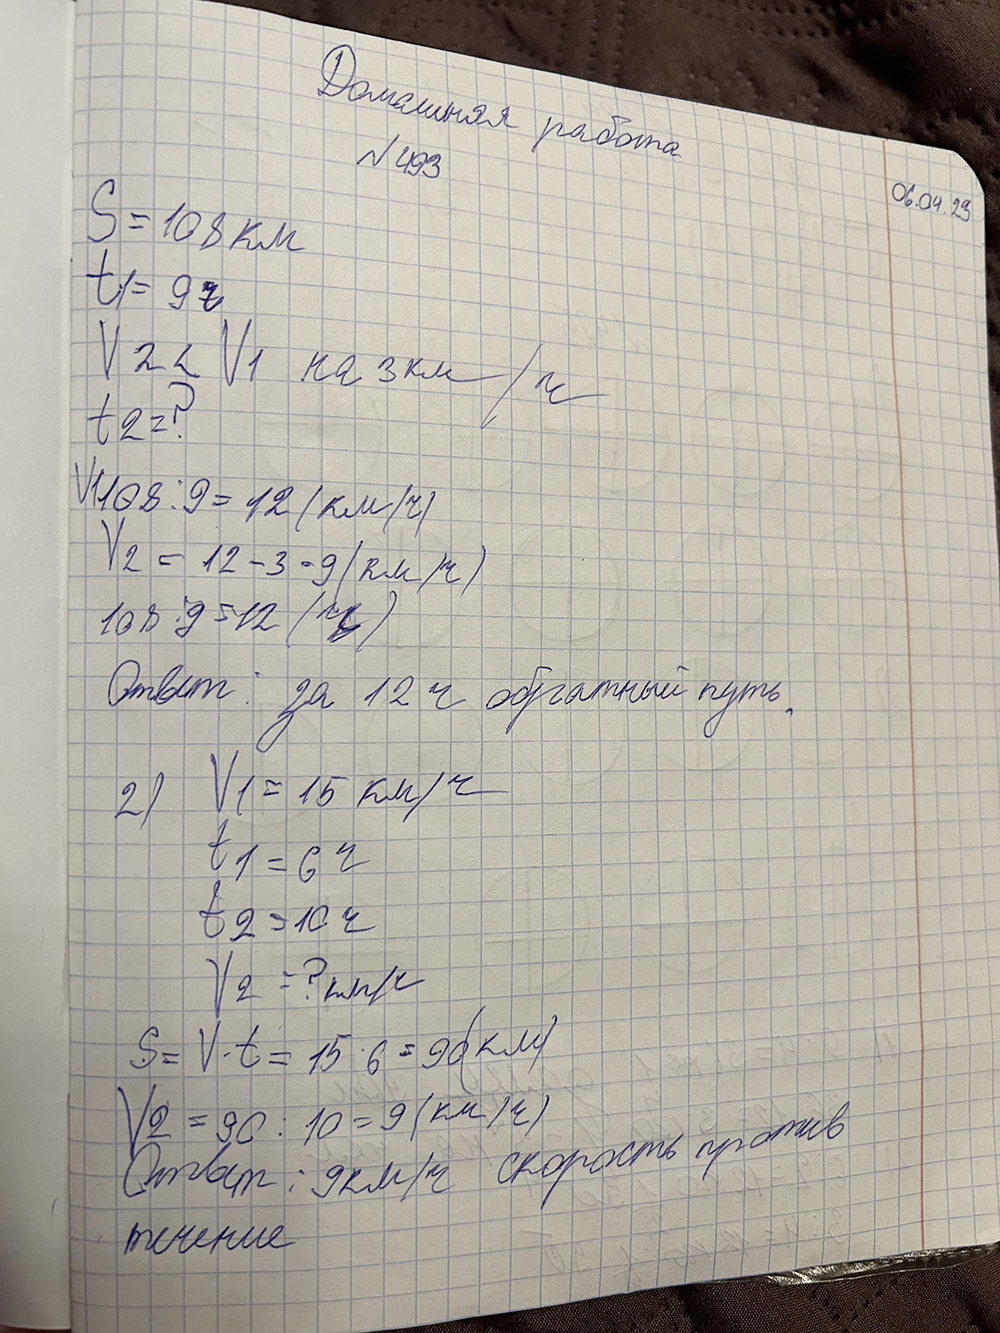 Домашняя работа
№493
06.04.23
S=108км
t1=9ч
V2<V1 на 3км/ч
t2=?
V1 108:9=12(км/ч)
V2=12-3=9(км/ч)
108:9=12(ч)
Ответ: за 12ч обратный путь.
2) V1=15 км/ч
t1=6ч
t2=10ч
V2=?км/ч
S=V·t=15·6=90(км)
V2=90:10=9(км/ч)
Ответ: 9км/ч скорость против
течение